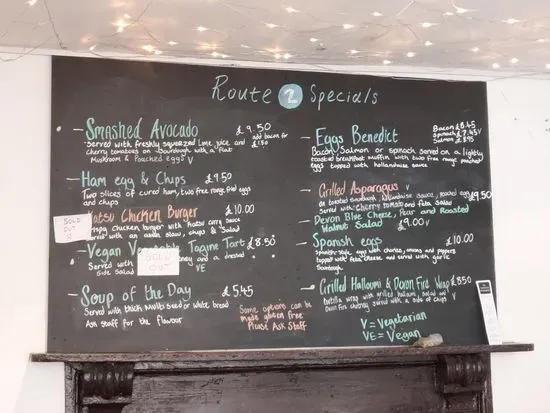 Route 2 Specials
Smashed Avocado £9.50
Served with freshly squeezed lime juice and
cherry tomatoes on Sourdough with a flat
Mushroom & Poached eggs V
add bacon for
£1.50
Ham egg & Chips £9.50
Two slices of cured ham, two free range fried eggs
and chips
SOLD
OUT
Katsu Chicken Burger £10.00
crispy chicken burger with Katsu curry sauce
served with an asian slaw, chips & Salad
Vegan Vegetable Tagine Tart £8.50
Served with
and a dressed
side Salad VE
SOLD
OUT
Soup of the Day £5.45
Served with thick Malted bread or white bread
Ask staff for the flavour
Some options can be
made gluten free
Please Ask Staff
Eggs Benedict
Bacon £8.45
Spinach £7.45 V
Salmon £8.95
Bacon, Salmon or spinach served on a lightly
toasted breakfast muffin with two free range poached
eggs topped with hollandaise sauce
Grilled Asparagus V £9.50
on toasted Sourdough, hollandaise sauce, poached egg
Served with cherry tomato and feta salad
Devon Blue Cheese, Pear and Roasted
Walnut Salad £9.00 V
Spanish eggs £10.00
Spanish style eggs with chorizo, onions and peppers
topped with feta cheese and served with garlic
Sourdough
Grilled Halloumi & Devon Fire Wrap £8.50
tortilla wrap with grilled halloumi, salad and
Devon Fire chutney served with a side of chips V
V = Vegetarian
VE = Vegan